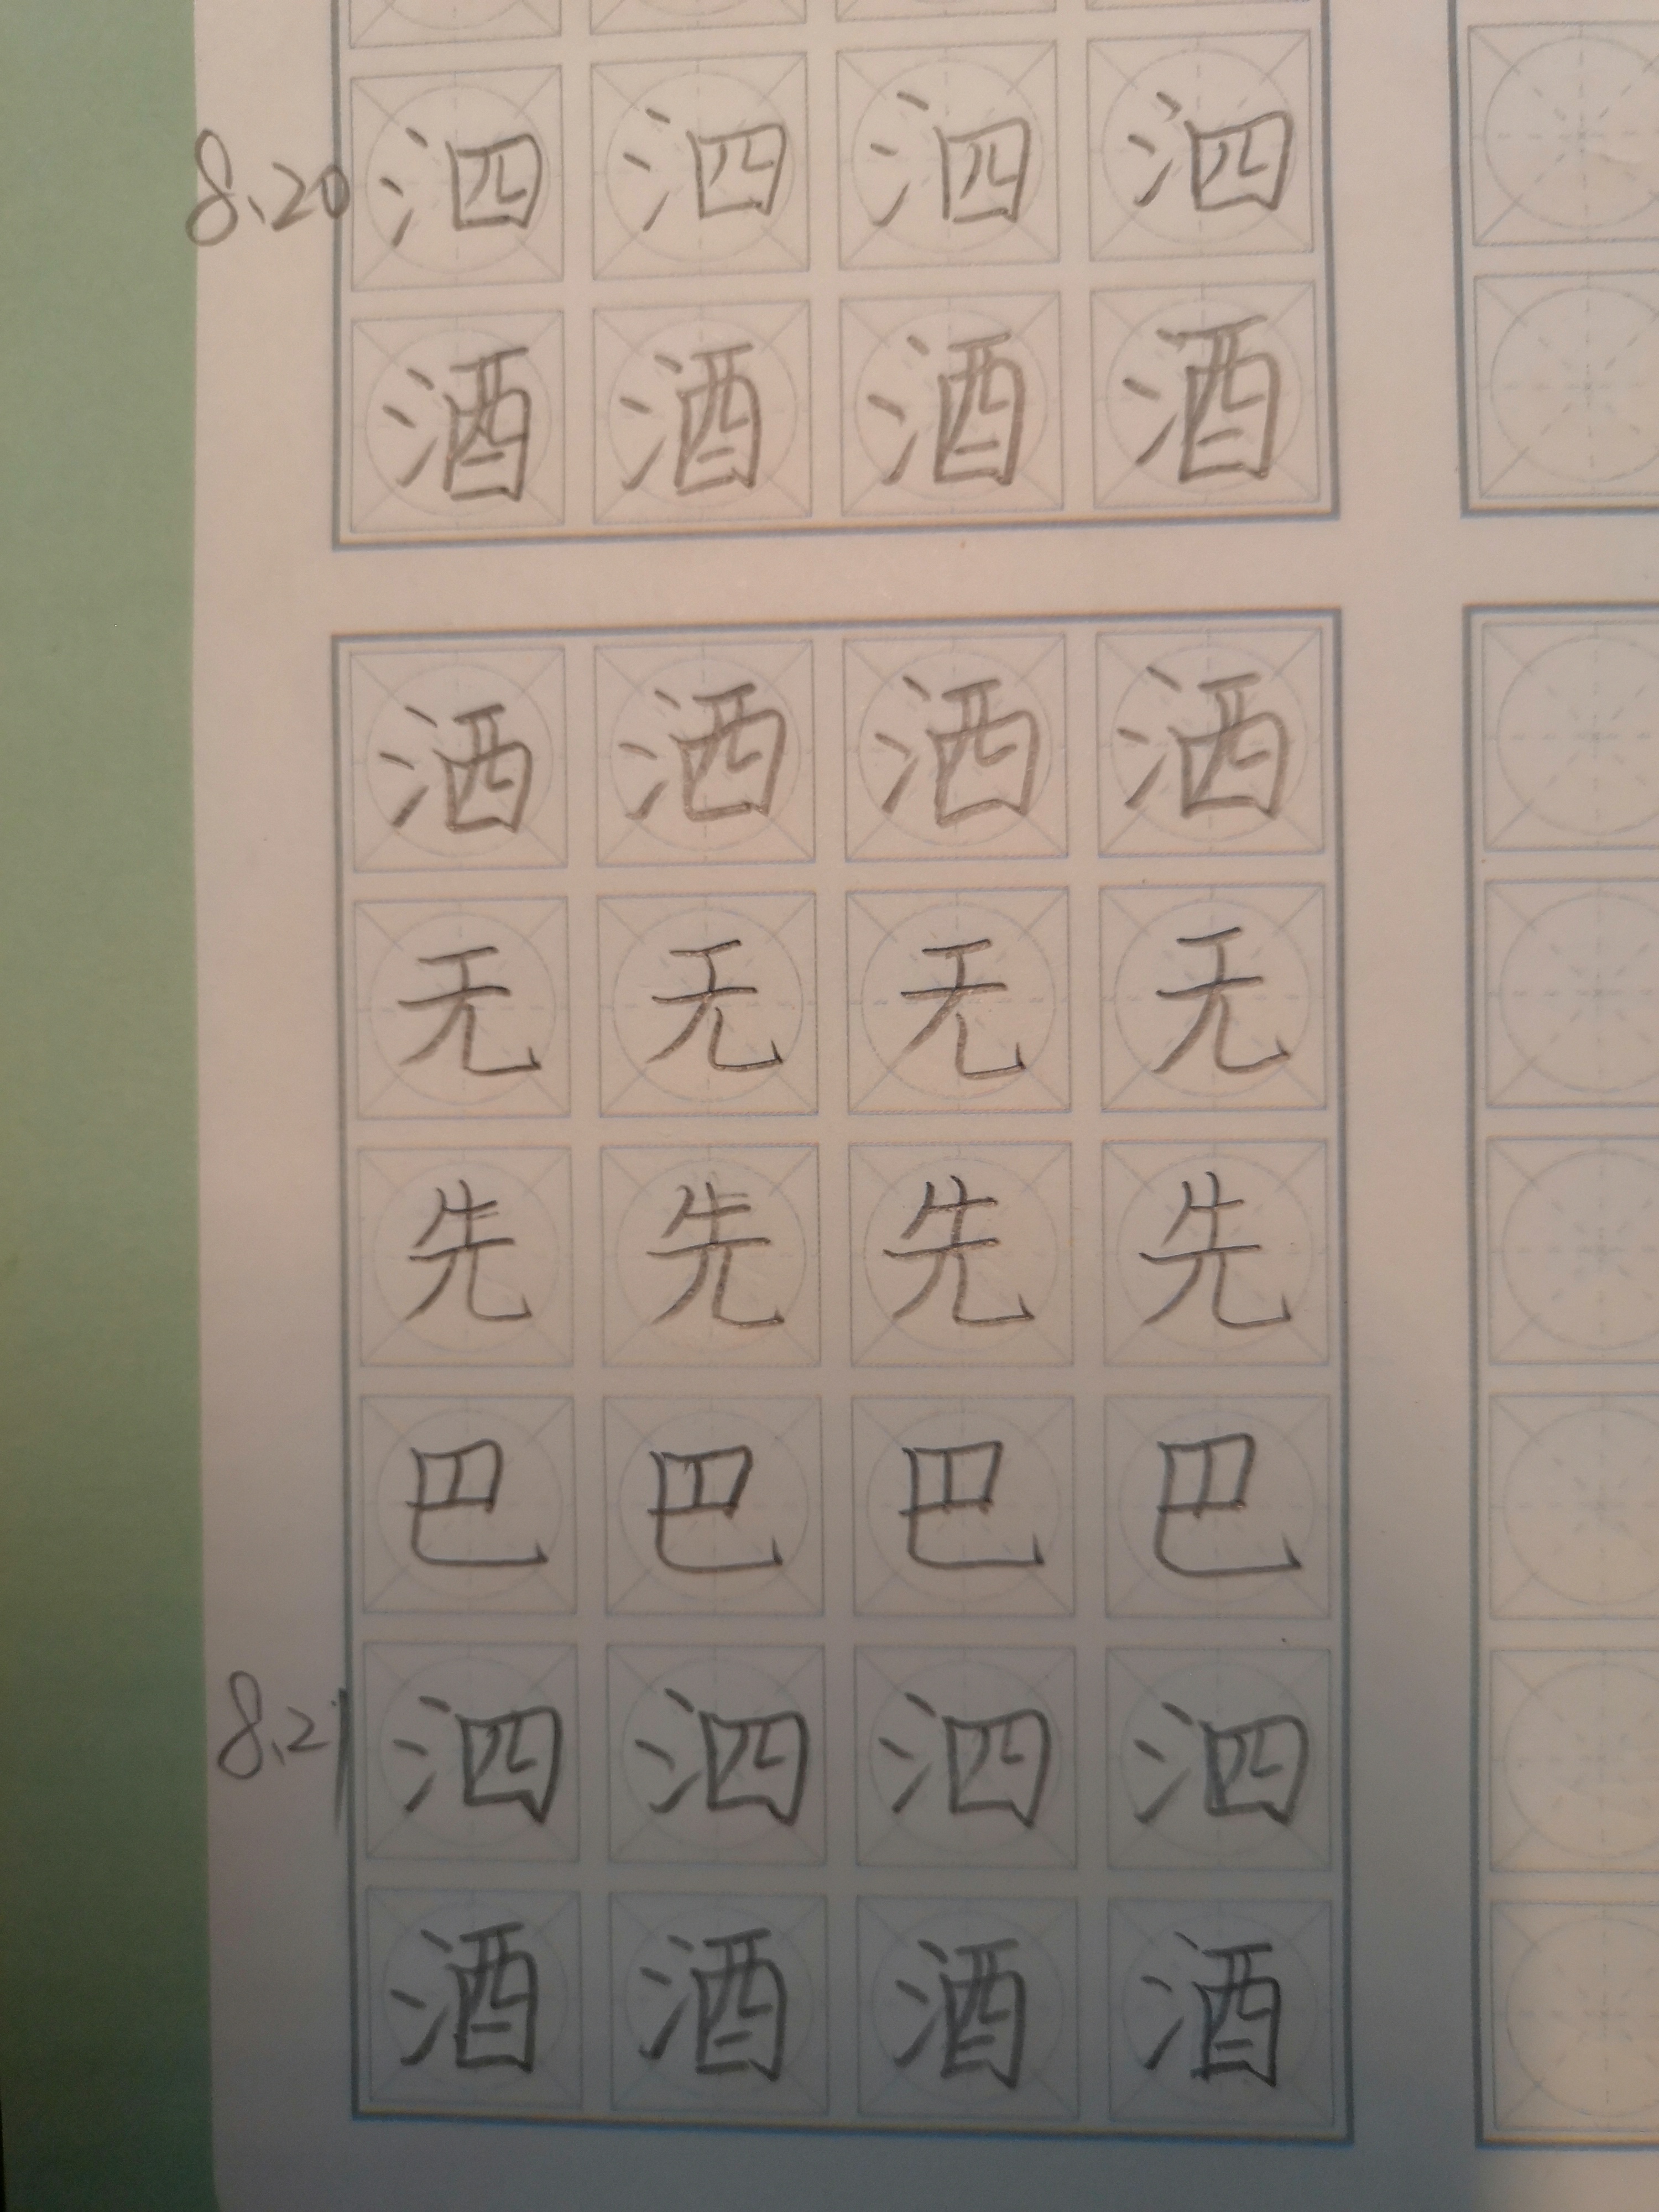 8.20 泗泗泗泗
酒酒酒酒
洒洒洒洒
无无无无
先先先先
巴巴巴巴
8.21 泗泗泗泗
酒酒酒酒